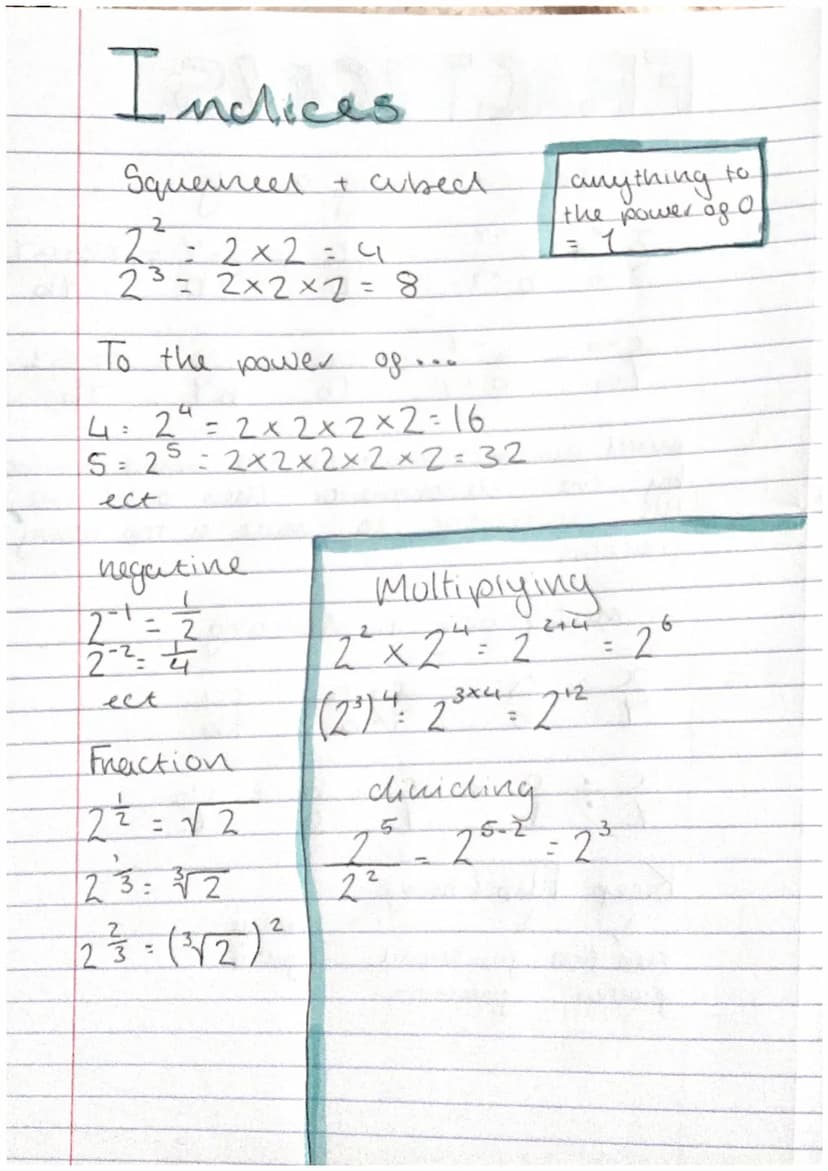 Indices
Squareed + cubed
anything to
the power of 0
= 1
2² = 2 × 2 = 4
2³ = 2×2×2 = 8
To the power of...
4 = 2⁴ = 2×2×2×2=16
5 = 2⁵ = 2×2×2×2×2=32
ect
negative
2⁻¹ = 1/2
2⁻² = 1/4
ect
Fraction
2^(1/2) = √2
2^(1/3) = ³√2
2^(2/3) = (³√2)²
Multiplying
2² × 2⁴ = 2²⁺⁴ = 2⁶
(2³)⁴ = 2^(3×4) = 2¹²
dividing
2⁵/2² = 2⁵⁻² = 2³